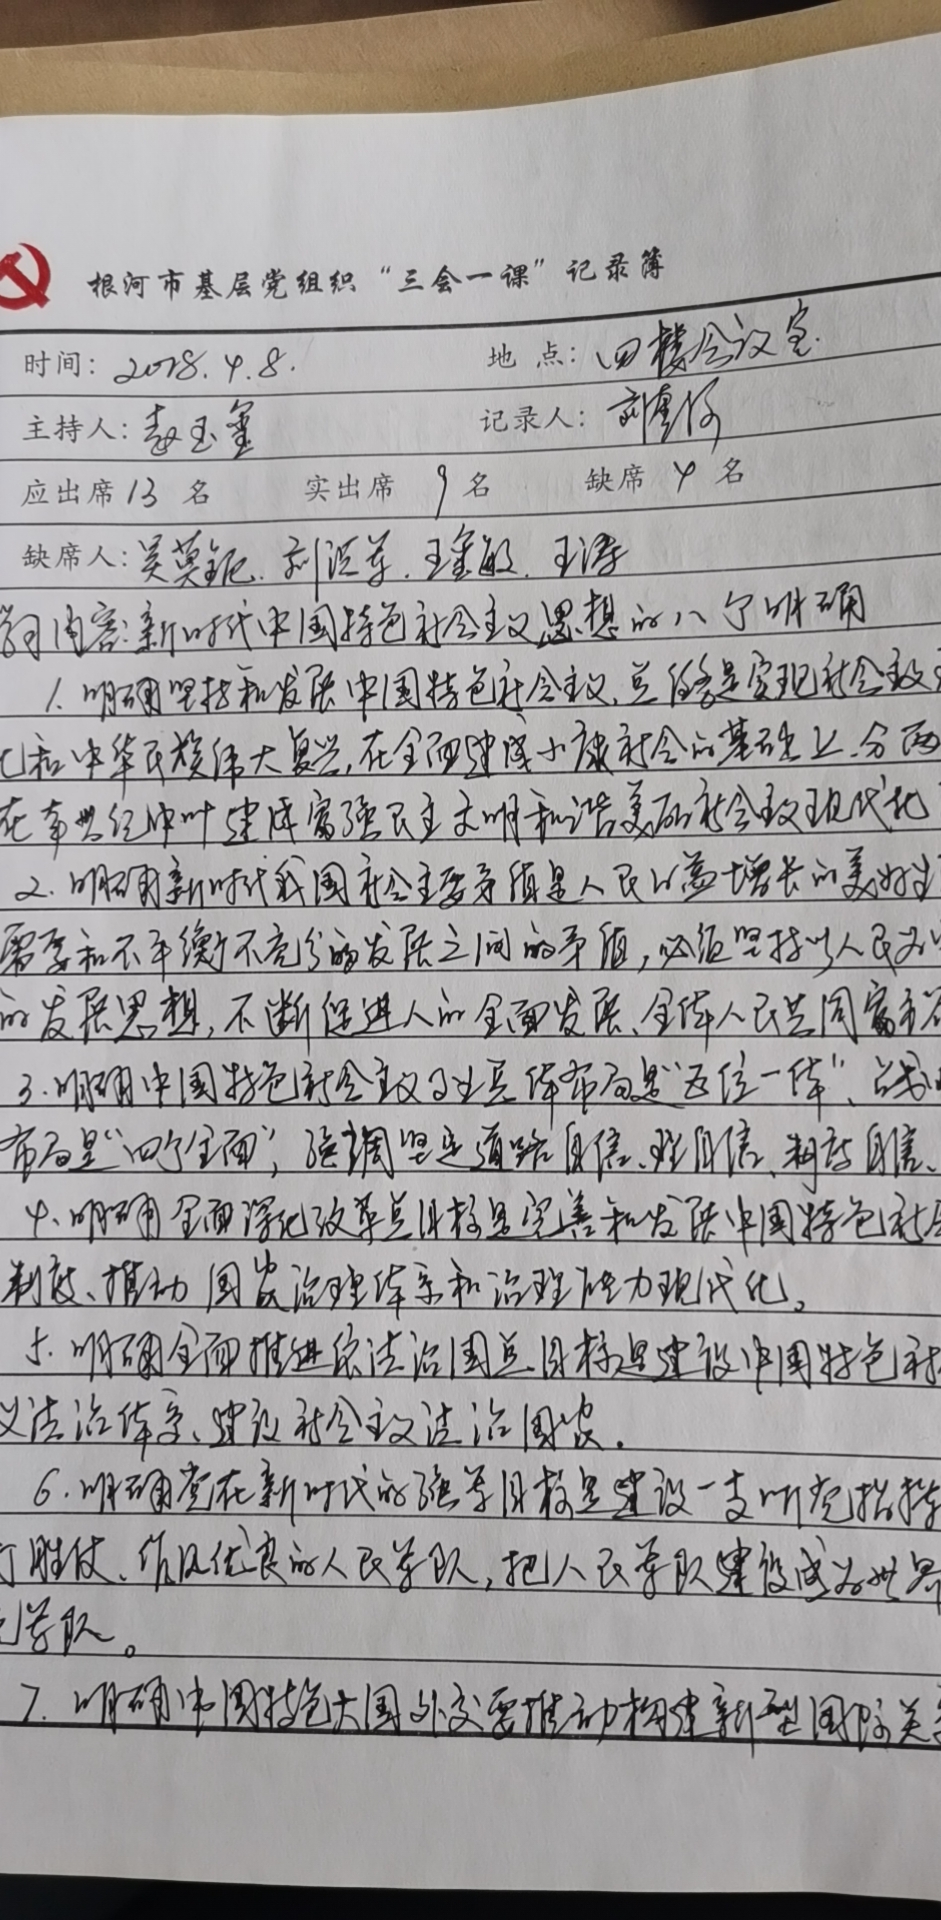 根河市基层党组织“三会一课”记录簿
时间：2018.4.8.　地点：四楼会议室.
主持人：玉玺　记录人：刘
应出席13名　实出席9名　缺席4名
缺席人：吴莫铌.刘洪军.王金敏.王涛
学习内容:新时代中国特色社会主义思想的八个明确
1.明确坚持和发展中国特色社会主义、总任务是实现社会主义
化和中华民族伟大复兴,在全面建成小康社会的基础上.分两
在本世纪中叶建成富强民主文明和谐美丽社会主义现代化
2.明确新时代我国社会主要矛盾是人民日益增长的美好生
需要和不平衡不充分的发展之间的矛盾,必须坚持以人民为
的发展思想,不断促进人的全面发展、全体人民共同富裕
3.明确中国特色社会主义事业总体布局是“五位一体”、战略
布局是“四个全面”,强调坚定道路自信、理自信、制度自信、
4、明确全面深化改革总目标是完善和发展中国特色社会
制度、推动国家治理体系和治理能力现代化。
5.明确全面推进依法治国总目标是建设中国特色社
义法治体系、建设社会主义法治国家.
6.明确党在新时代的强军目标是建设一支听党指挥
打胜仗、作风优良的人民军队,把人民军队建设成为世界
军队。
7.明确中国特色大国外交要推动构建新型国际关系